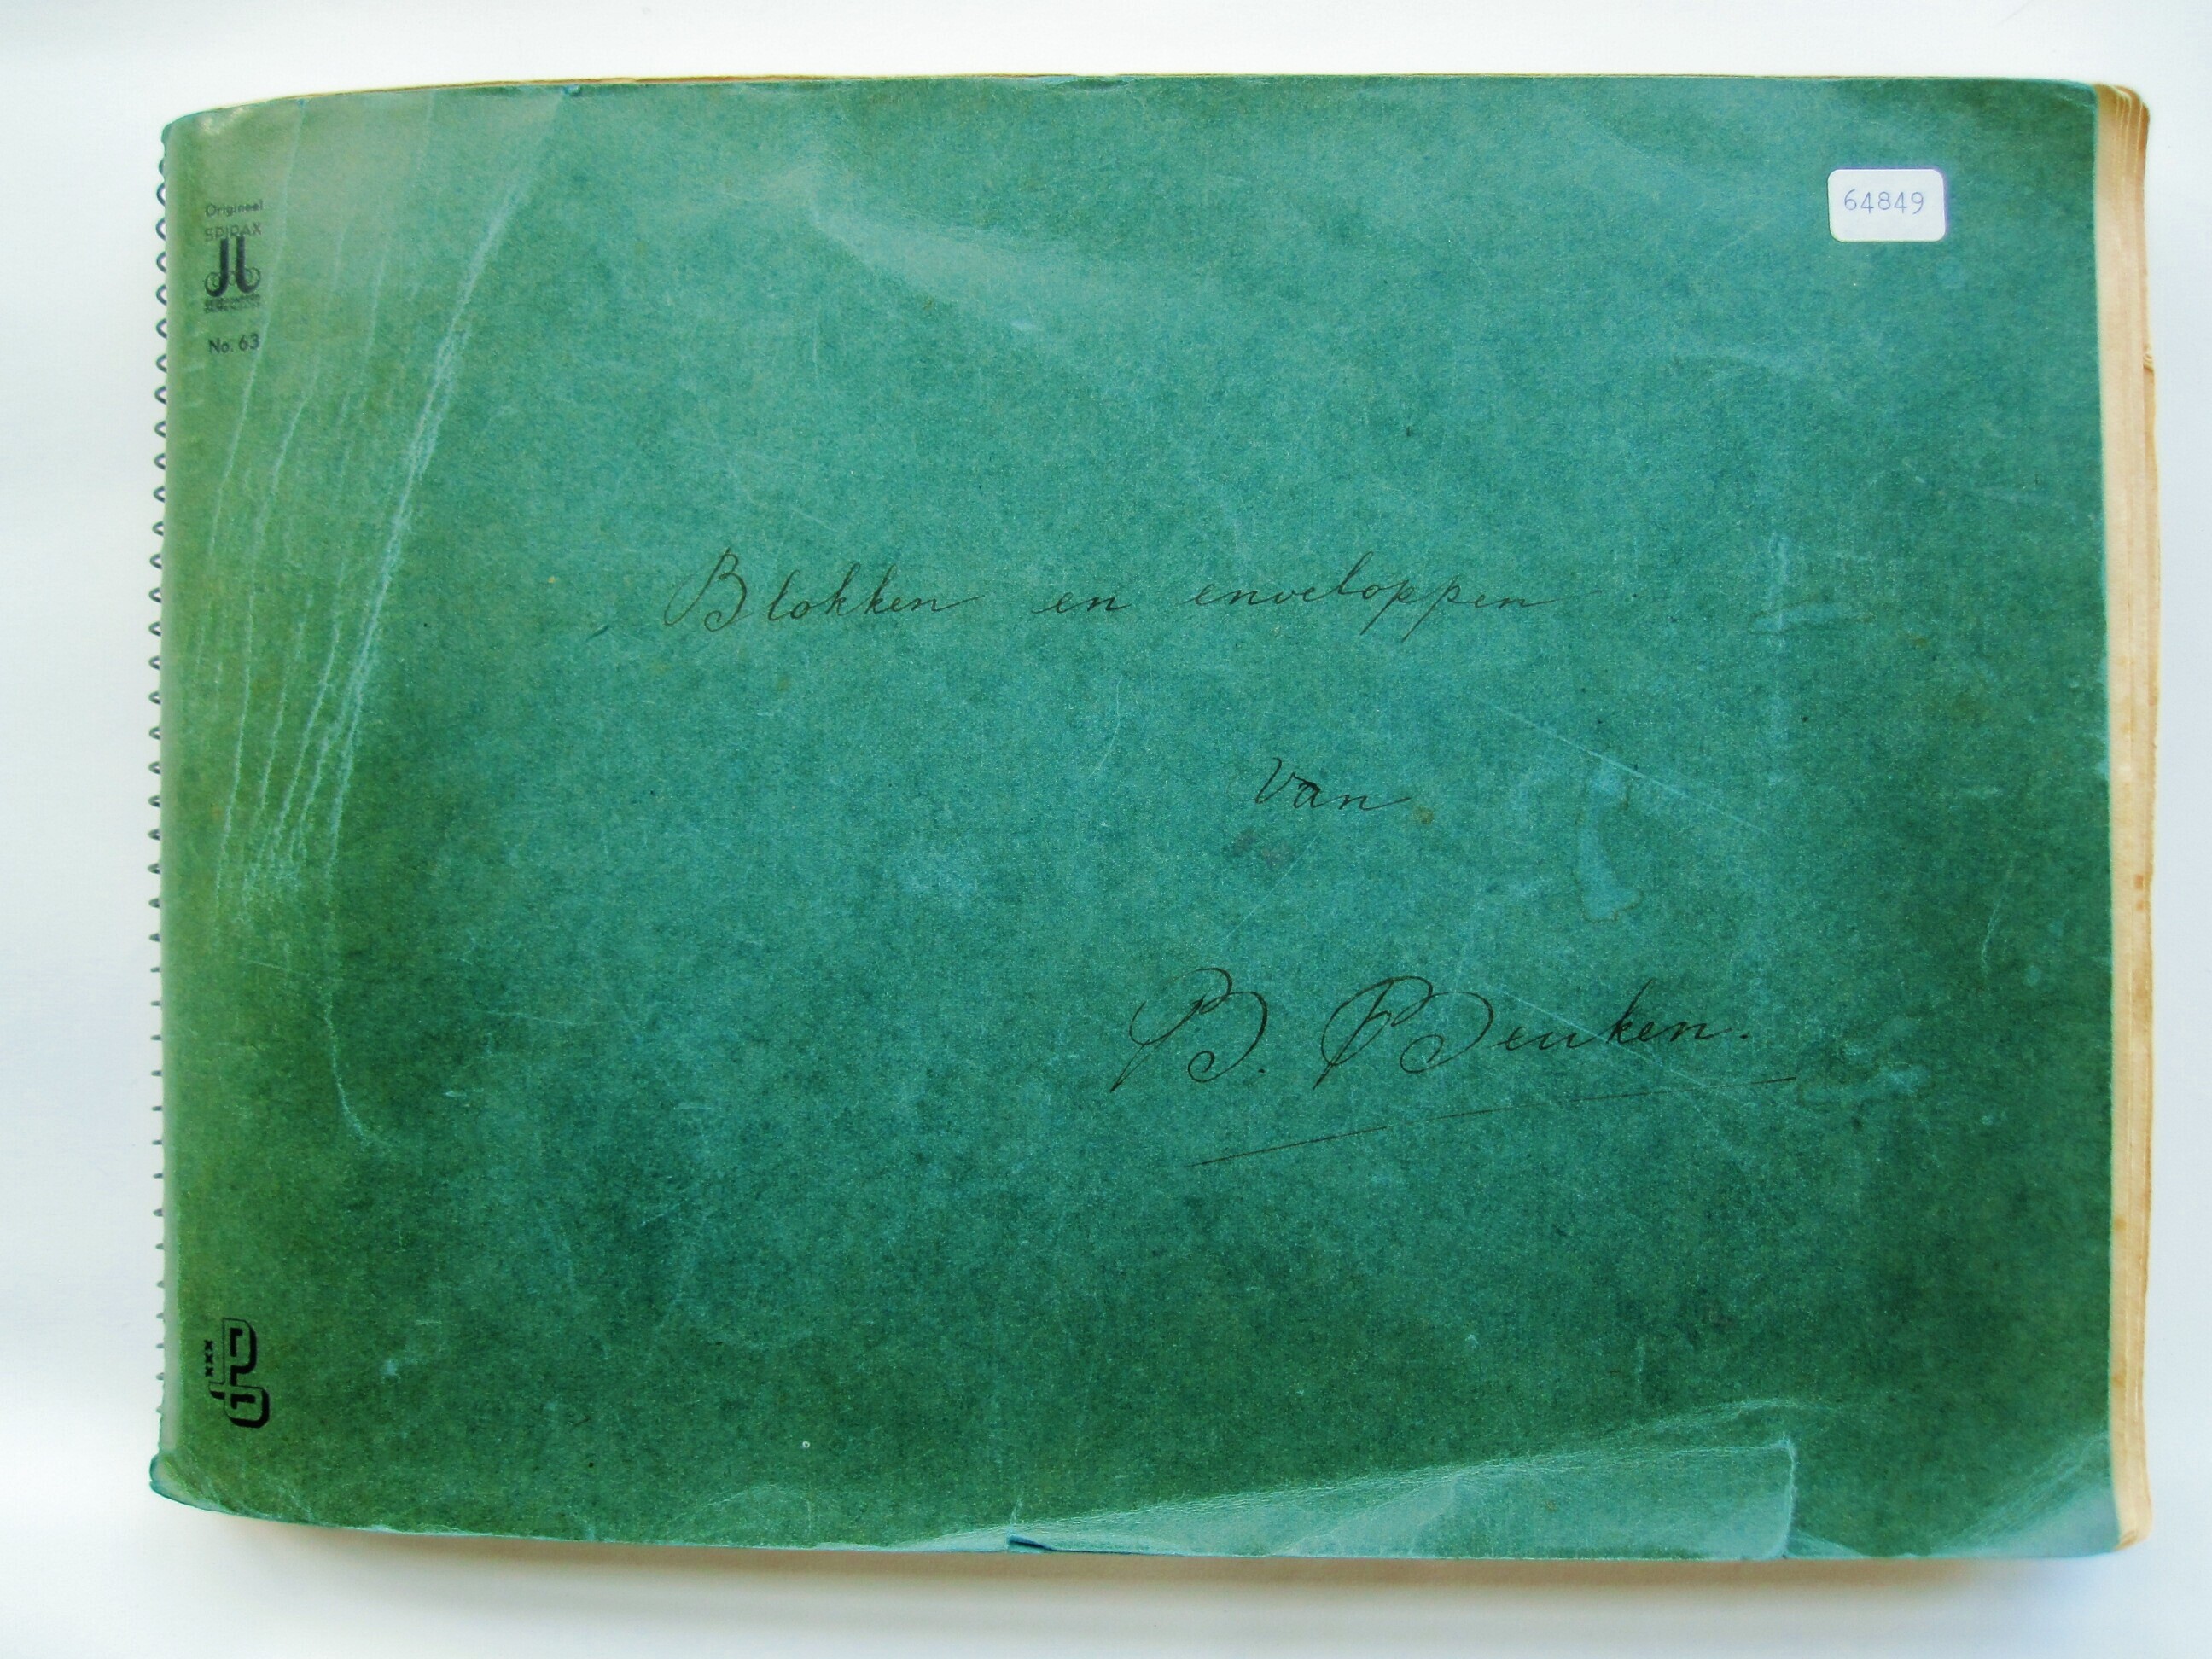 64849
Origineel
SPIRAX
No. 63
Blokken en enveloppen
van
B. Beuken.
xxx